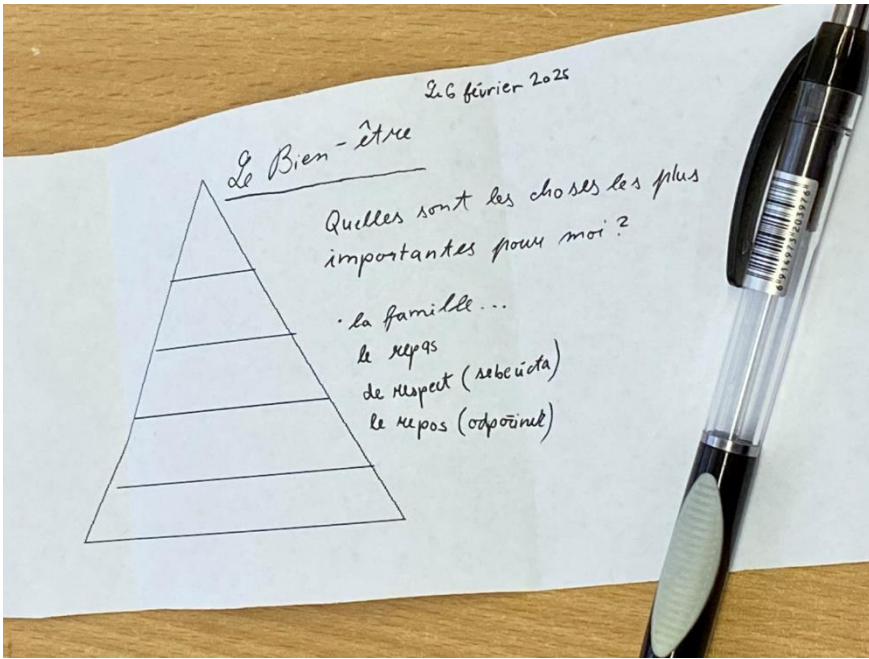 Le 6 février 2025
Le Bien-être
Quelles sont les choses les plus
importantes pour moi ?
· la famille...
le repas
de respect (sebeúcta)
le repos (odpočinek)
6914973203976